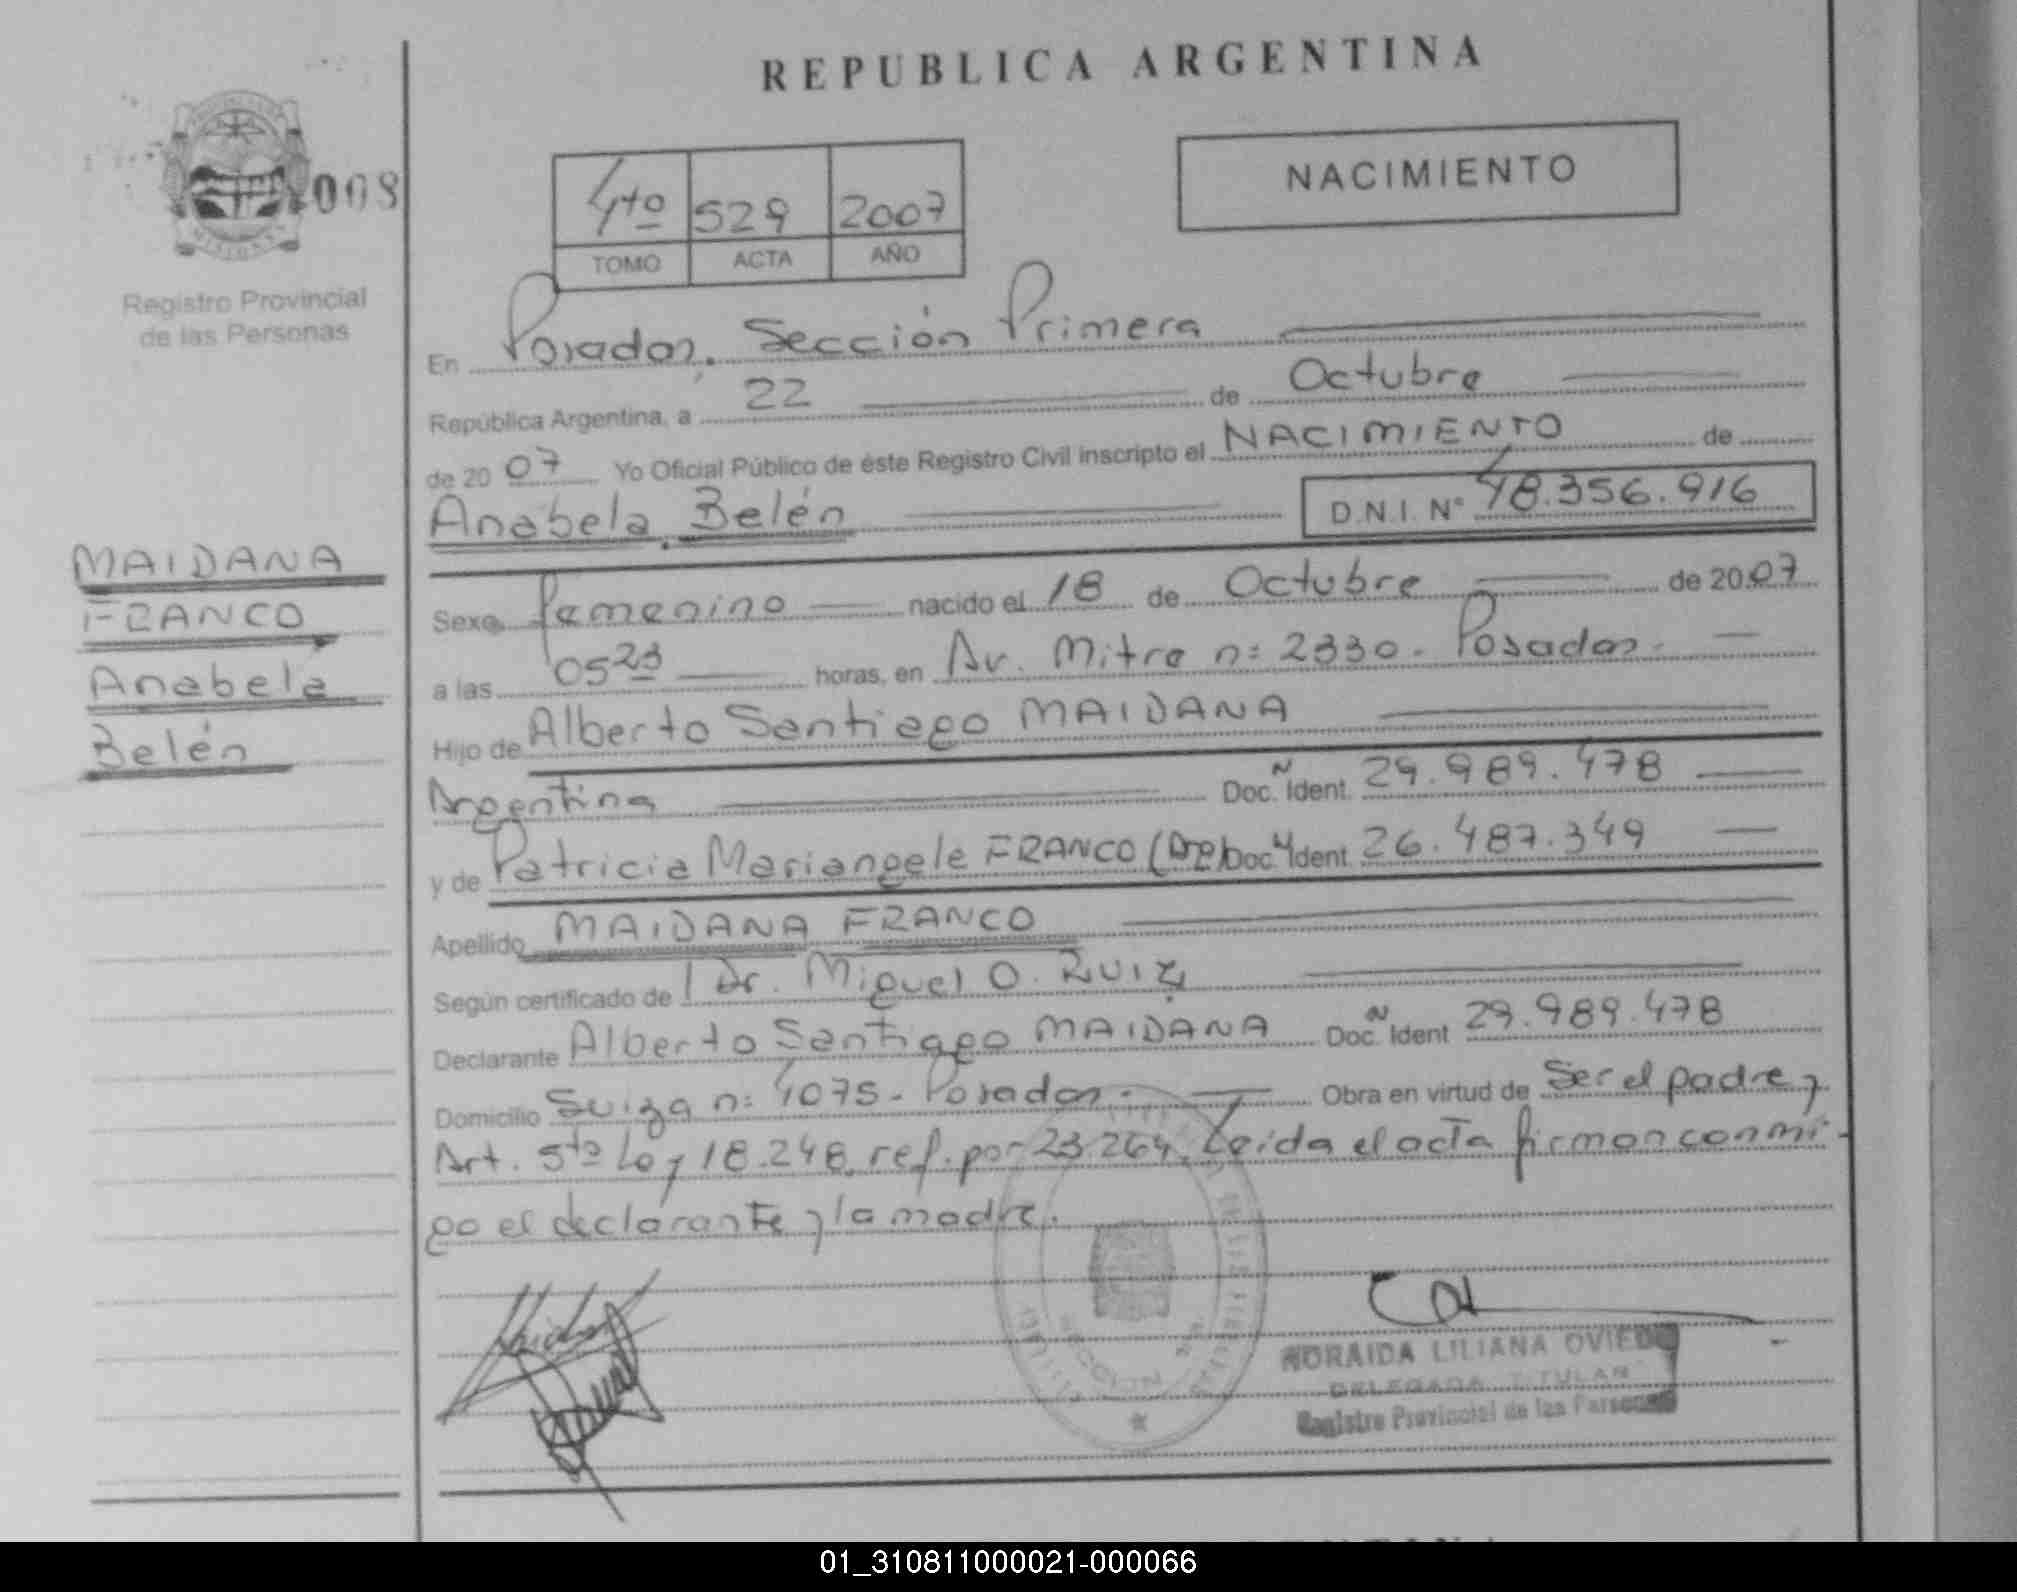 REPUBLICA ARGENTINA
008
MISIONES
Registro Provincial
de las Personas
4to 529 2007
TOMO ACTA AÑO
NACIMIENTO
En Posadas. Sección Primera
República Argentina, a 22 de Octubre
de 2007 Yo Oficial Público de éste Registro Civil inscripto el NACIMIENTO de
Anabela Belén D.N.I. N° 48.356.916
MAIDANA
FRANCO
Anabela
Belén
Sexo femenino nacido el 18 de Octubre de 2007
a las 0523 horas, en Av. Mitre n: 2330. Posadas.
Hijo de Alberto Santiago MAIDANA
Argentina Doc. Ident. 29.989.478
y de Patricia Mariangele FRANCO (Arg) Doc. Ident. 26.487.349
Apellido MAIDANA FRANCO
Según certificado de Dr. Miguel O. RUIZ
Declarante Alberto Santiago MAIDANA Doc. Ident 29.989.478
Domicilio Suiza n: 4075. Posadas. Obra en virtud de Ser el padre y
Art. 5to Ley 18.248. ref. por 23.264. Leida el acta firman conmi-
go el declarante y la madre.
SECCION
NORAIDA LILIANA OVIEDO
DELEGADA TITULAR
Registro Provincial de las Personas
01_310811000021-000066